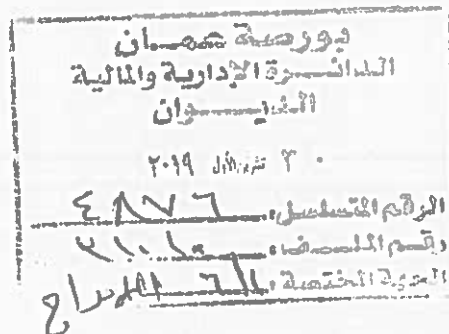 بورصة عمان
الدائرة الإدارية والمالية
الديوان
٣٠ تشرين الأول ٢٠١٩
الرقم المتسلسل: ٤٨٧٦
رقم الملف:
الجهة المختصة: الإدراج